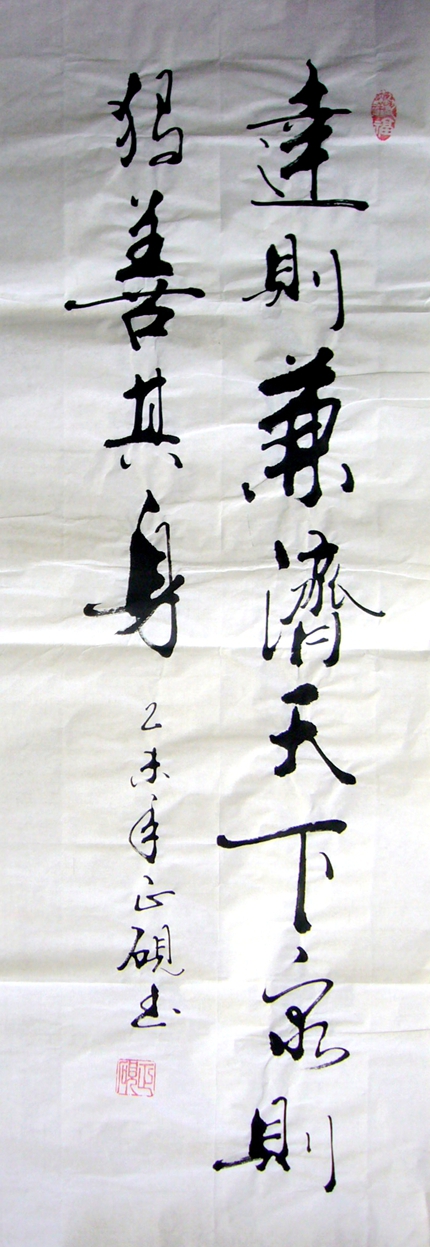 達則兼濟天下窮則
獨善其身
乙未年正硯書
正硯